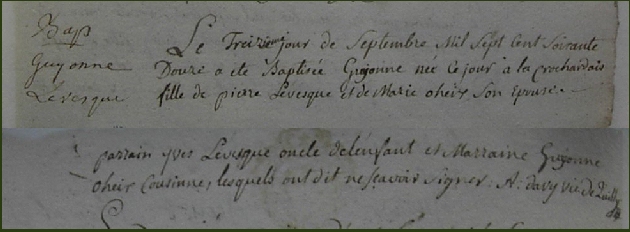 Bap
Guyonne
Levesque
Le Treizieme jour de Septembre Mil Sept Cent Soixante
Douze a ete Baptisée Guyonne née ce jour a la prochardais
fille de pierre Levesque et de Marie oheix Son Epouse.
parrain yves Levesque oncle de lenfant et Marraine Guyonne
oheix Cousinne, lesquels ont dit ne scavoir Signer. A: davy vic de